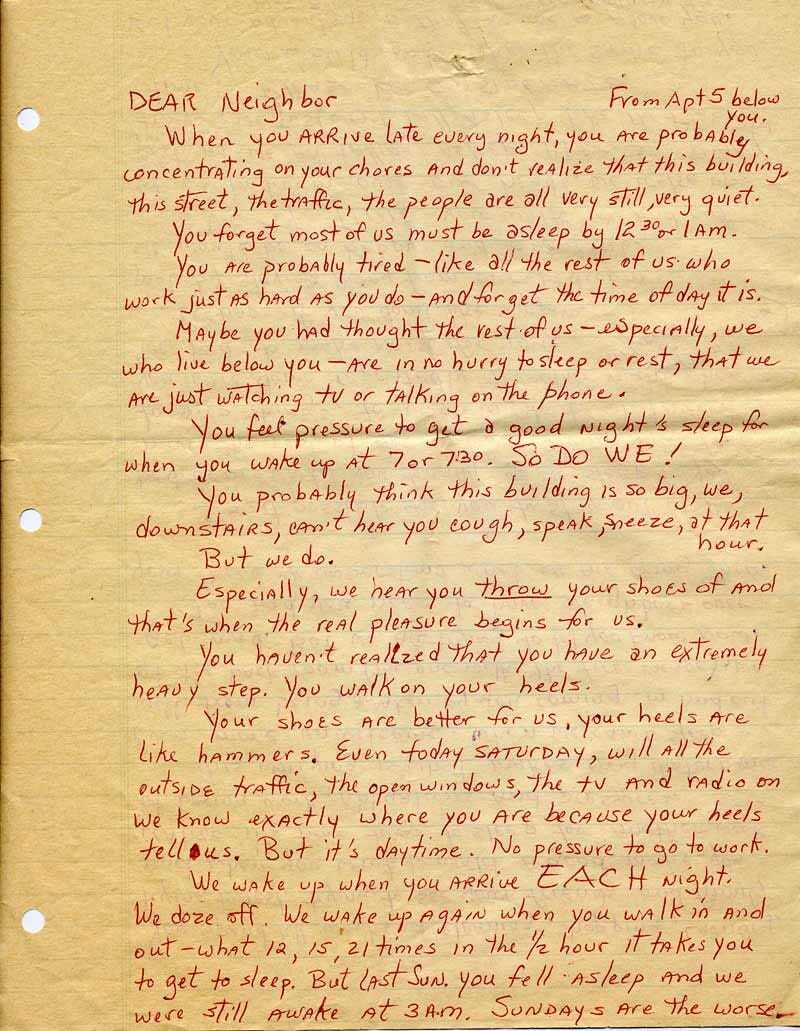 DEAR Neighbor From Apt 5 below
you.
When you ARRIVE LATE every night, you ARE probAbly
concentrating on your chores AND don't reAlize thAt this building,
this street, the traffic, the people are all very still, very quiet.
You forget most of us must be asleep by 12 30 or 1 AM.
You ARE probably tired - like all the rest of us who
work just AS hard AS you do - AND forget the time of day it is.
MAybe you had thought the rest of us - especially, we
who live below you - ARE in no hurry to sleep or rest, that we
ARE just wATching tv or tAlking on the phone.
You feel pressure to get a good Night's sleep for
when you wAke up AT 7 or 7:30. SO DO WE!
You probAbly think this building is so big, we,
downstAIRS, can't heAr you cough, speak, sneeze, at that
hour.
But we do.
Especially, we heAr you throw your shoes of AND
thAt's when the reAl pleAsure begins for us.
You hAven't realized thAt you hAve an extremely
heAvy step. You wAlk on your heels.
Your shoes ARE better for us, your heels ARE
like hammers. Even today SATURDAY, will All the
outsIDE traffic, the open windows, the tv AND rAdio on
we know exActly where you Are becAuse your heels
tell us. But it's dAytime. No pressure to go to work.
We wake up when you ARRive EACH Night.
We doze off. We wAke up AgAIN when you wAlk in AND
out - whAt 12, 15, 21 times in the 1/2 hour it tAkes you
to get to sleep. But LAst SUN. you fell asleep AND we
were still AwAke AT 3 A.M. SUNDAYs ARE the worse.